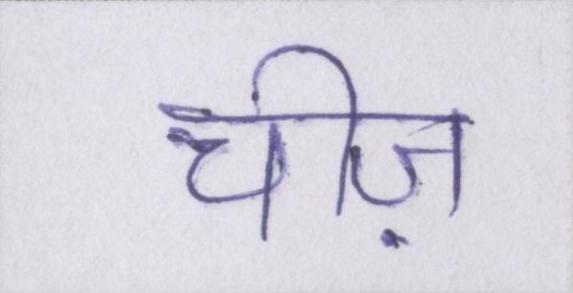 चीज़